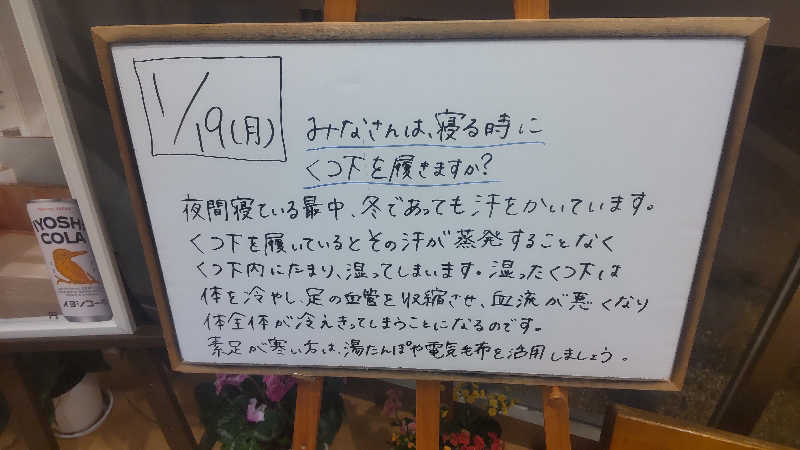 1/19(月)
みなさんは、寝る時に
くつ下を履きますか?
夜間寝ている最中、冬であっても汗をかいています。
くつ下を履いているとその汗が蒸発することなく
くつ下内にたまり、湿ってしまいます。湿ったくつ下は
体を冷やし、足の血管を収縮させ、血流が悪くなり
体全体が冷えきってしまうことになるのです。
素足が寒い方は、湯たんぽや電気毛布を活用しましょう。
IYOSHI
COLA
円